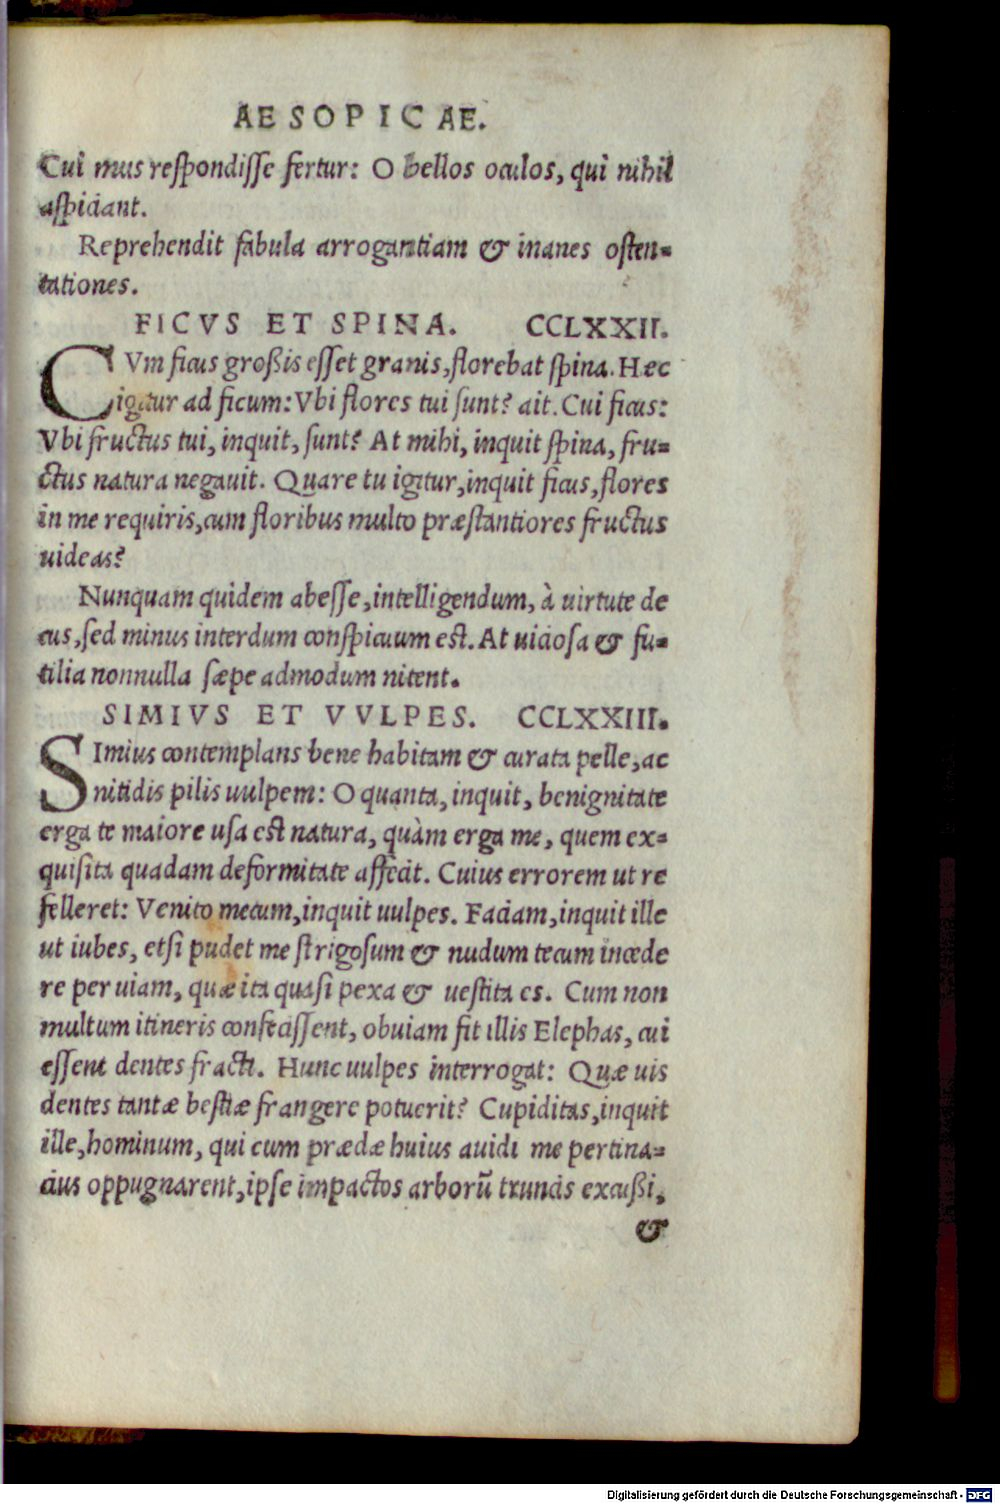 AESOPICAE.
Cui mus respondisse fertur: O bellos oculos, qui nihil
aspiciant.
Reprehendit fabula arrogantiam & inanes osten-
tationes.
FICVS ET SPINA. CCLXXII.
CVm ficus großis esset granis, florebat spina. Hæc
igitur ad ficum: Vbi flores tui sunt? ait. Cui ficus:
Vbi fructus tui, inquit, sunt? At mihi, inquit spina, fru-
ctus natura negauit. Quare tu igitur, inquit ficus, flores
in me requiris, cum floribus multo præstantiores fructus
uideas?
Nunquam quidem abesse, intelligendum, à uirtute de
cus, sed minus interdum conspicuum est. At uiciosa & fu-
tilia nonnulla sæpe admodum nitent.
SIMIVS ET VVLPES. CCLXXIII.
SImius contemplans bene habitam & curata pelle, ac
nitidis pilis uulpem: O quanta, inquit, benignitate
erga te maiore usa est natura, quàm erga me, quem ex-
quisita quadam deformitate affecit. Cuius errorem ut re
felleret: Venito mecum, inquit uulpes. Faciam, inquit ille
ut iubes, etsi pudet me strigosum & nudum tecum incede
re per uiam, quæ ita quasi pexa & uestita es. Cum non
multum itineris confecissent, obuiam fit illis Elephas, cui
essent dentes fracti. Hunc uulpes interrogat: Quæ uis
dentes tantæ bestiæ frangere potuerit? Cupiditas, inquit
ille, hominum, qui cum prædæ huius auidi me pertina-
cius oppugnarent, ipse impactos arborū truncis excußi,
&
Digitalisierung gefördert durch die Deutsche Forschungsgemeinschaft - DFG